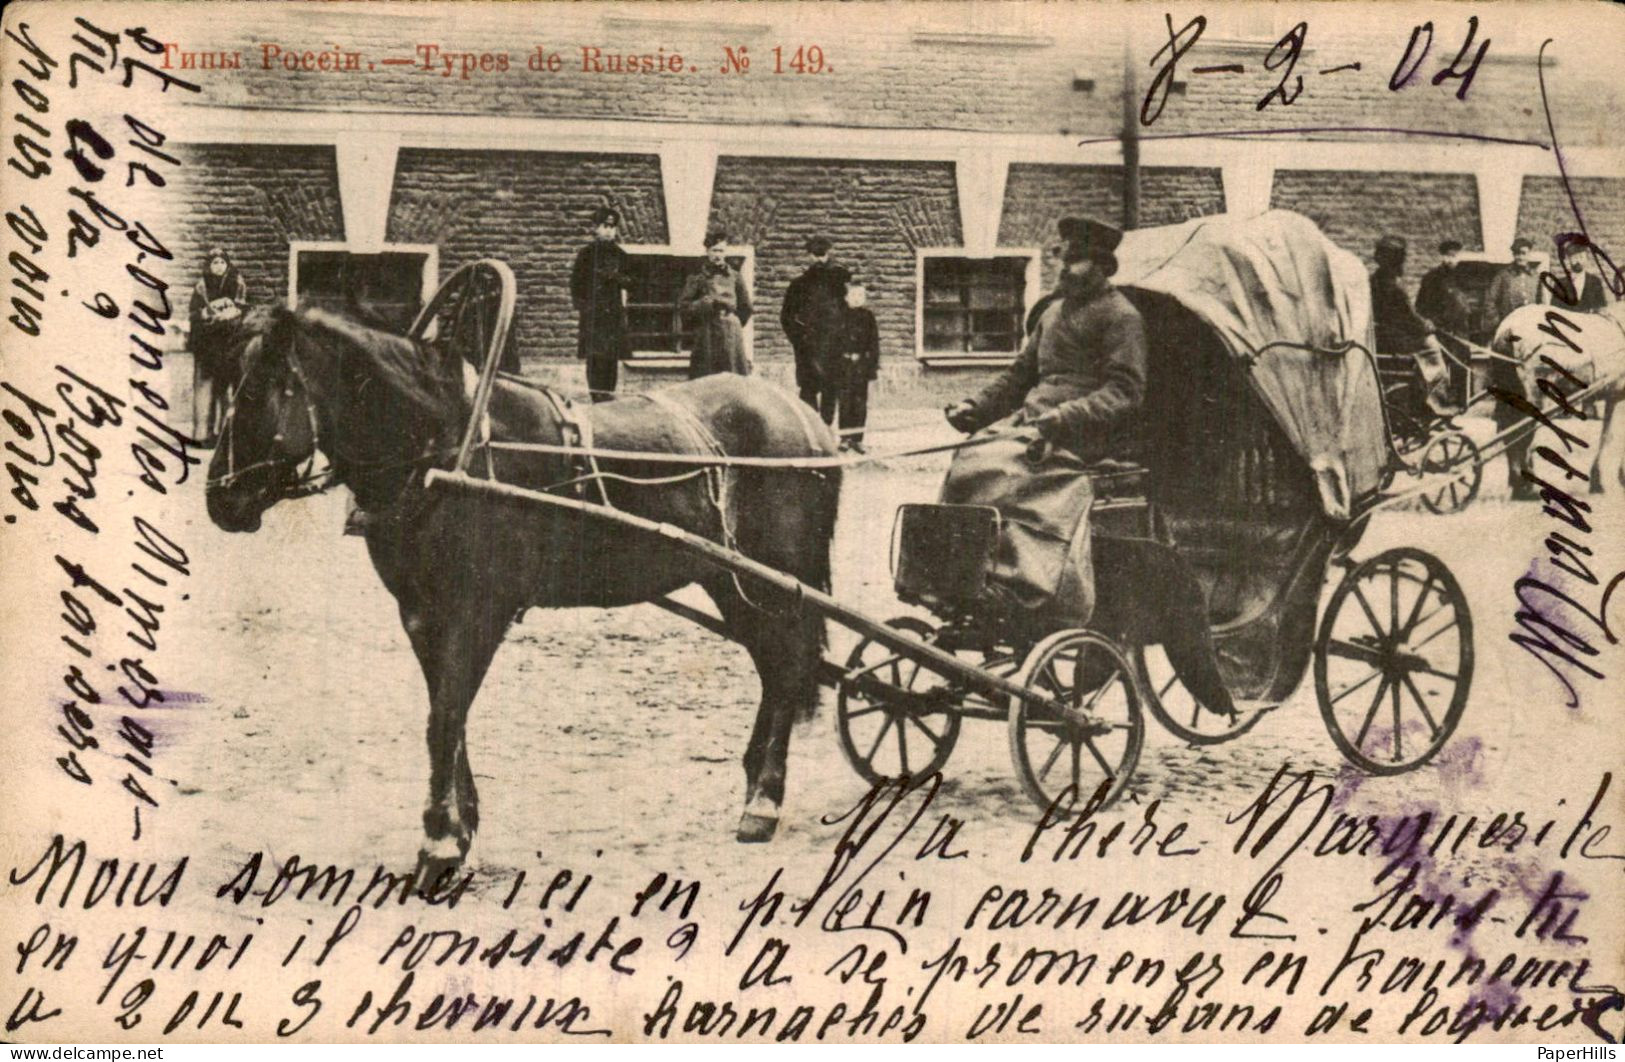 Типы Россіи.—Types de Russie. № 149.
8-2-04
Ma chère Marguerite
Nous sommes ici en plein carnaval. Sais-tu
en quoi il consiste? a se promener en traineau
a 2 ou 3 chevaux harnachés de rubans de
et de sonnettes. Aimerais-
tu cela? Bons baisers
nous
PaperHills